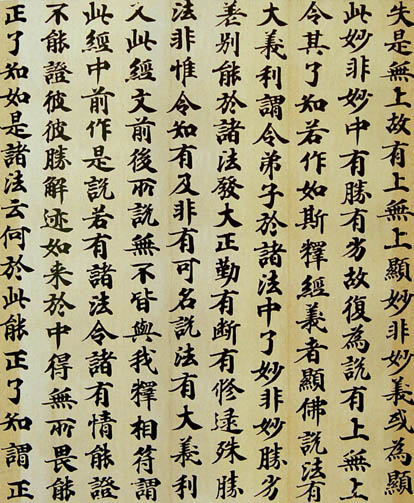 失是無上故有上無上顯妙非妙義或為顯
此妙非妙中有勝有劣故復為說有上無上
令其了知若作如斯釋經義者顯佛說法有
大義利謂令弟子於諸法中了妙非妙勝劣
差別能於諸法發大正勤有斷有修逮殊勝
法非惟令知有及非有可名說法有大義利
又此經文前後所說無不皆與我釋相符謂
此經中前作是說若有諸法令諸有情能證
不能證彼彼勝解迹如来於中得無所畏能
正了知如是諸法云何於此能正了知謂正